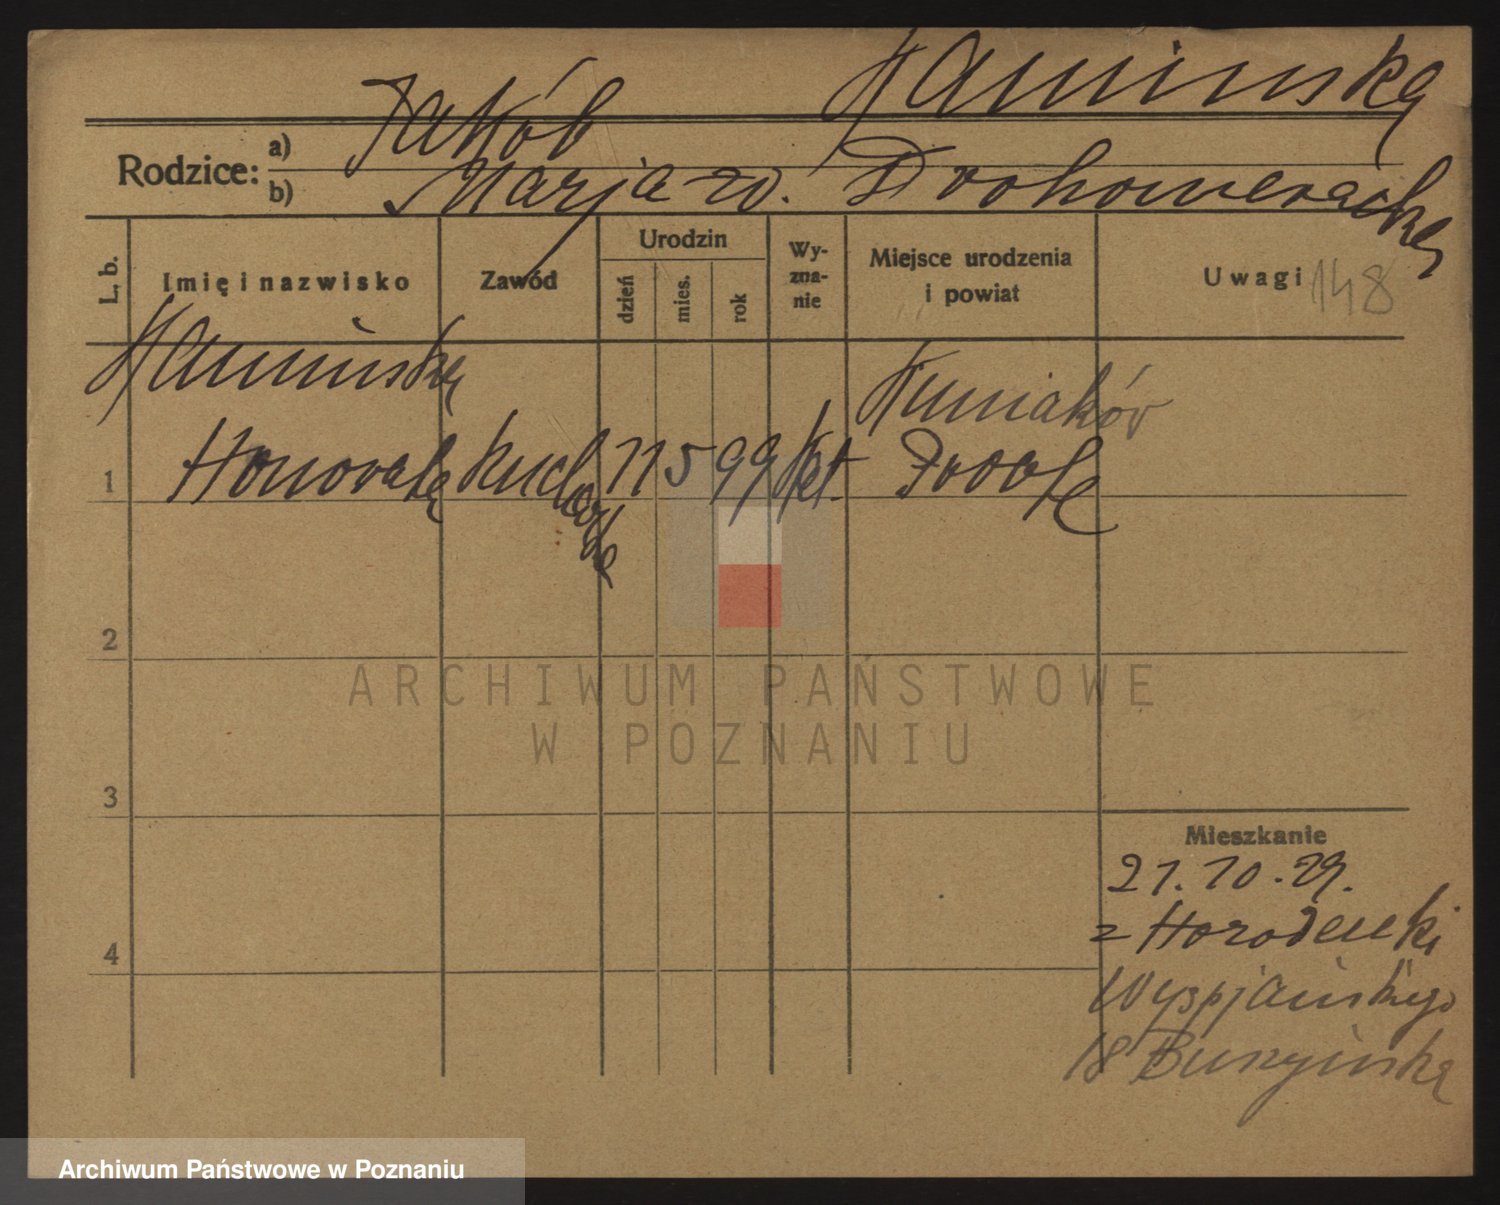 Kamińska
Rodzice: a) Jakób
b) Marja zd. Drohomerecka
L. b.
Imię i nazwisko
Zawód
Urodzin
dzień
mies.
rok
Wy-
zna-
nie
Miejsce urodzenia
i powiat
Uwagi 148
Kamińska
Honorata kucharka 11 5 99 kat.
1
2
3
4
Mieszkanie
21.10.29.
z Horodenki
Wyspjańskiego
18
ARCHIWUM PAŃSTWOWE
W POZNANIU
Archiwum Państwowe w Poznaniu